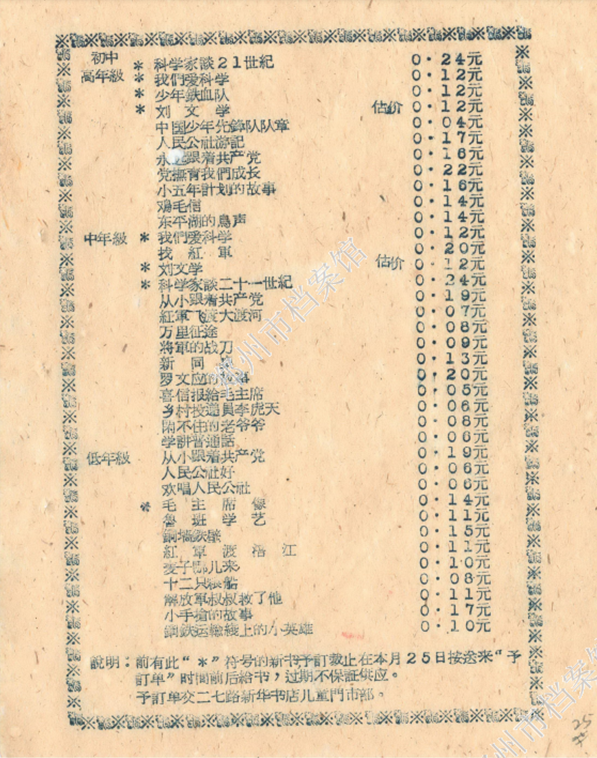 初中
高年級 * 科学家談21世紀 0.24元
* 我們爱科学 0.12元
* 少年鉄血队 0.12元
* 刘文学 估价 0.12元
中国少年先鋒队队章 0.04元
人民公社游記 0.17元
永远跟着共产党 0.16元
党撫育我們成长 0.22元
小五年計划的故事 0.16元
鸡毛信 0.14元
东平湖的鳥声 0.14元
中年級 * 我們爱科学 0.12元
找紅軍 0.20元
* 刘文学 估价 0.12元
* 科学家談二十一世紀 0.24元
从小跟着共产党 0.19元
紅軍飞渡大渡河 0.07元
万里征途 0.08元
將軍的战刀 0.09元
新同 0.13元
罗文应的故事 0.20元
喜信报給毛主席 0.05元
乡村投遞員李虎天 0.06元
閑不住的老爷爷 0.08元
学講普通話 0.06元
低年級 从小跟着共产党 0.19元
人民公社好 0.06元
欢唱人民公社 0.06元
* 毛主席像 0.14元
魯班学艺 0.11元
銅墙鉄壁 0.15元
紅軍渡 江 0.11元
麦子哪儿来 0.10元
十二只粮船 0.08元
解放軍叔叔救了他 0.11元
小手槍的故事 0.17元
鋼鉄运輸綫上的小英雄 0.10元
說明：前有此“*”符号的新书予訂截止在本月25日按送来“予
訂单”时間前后給书，过期不保証供应。
予訂单交二七路新华书店儿童門市部。
25
州市档案馆
州市档案馆